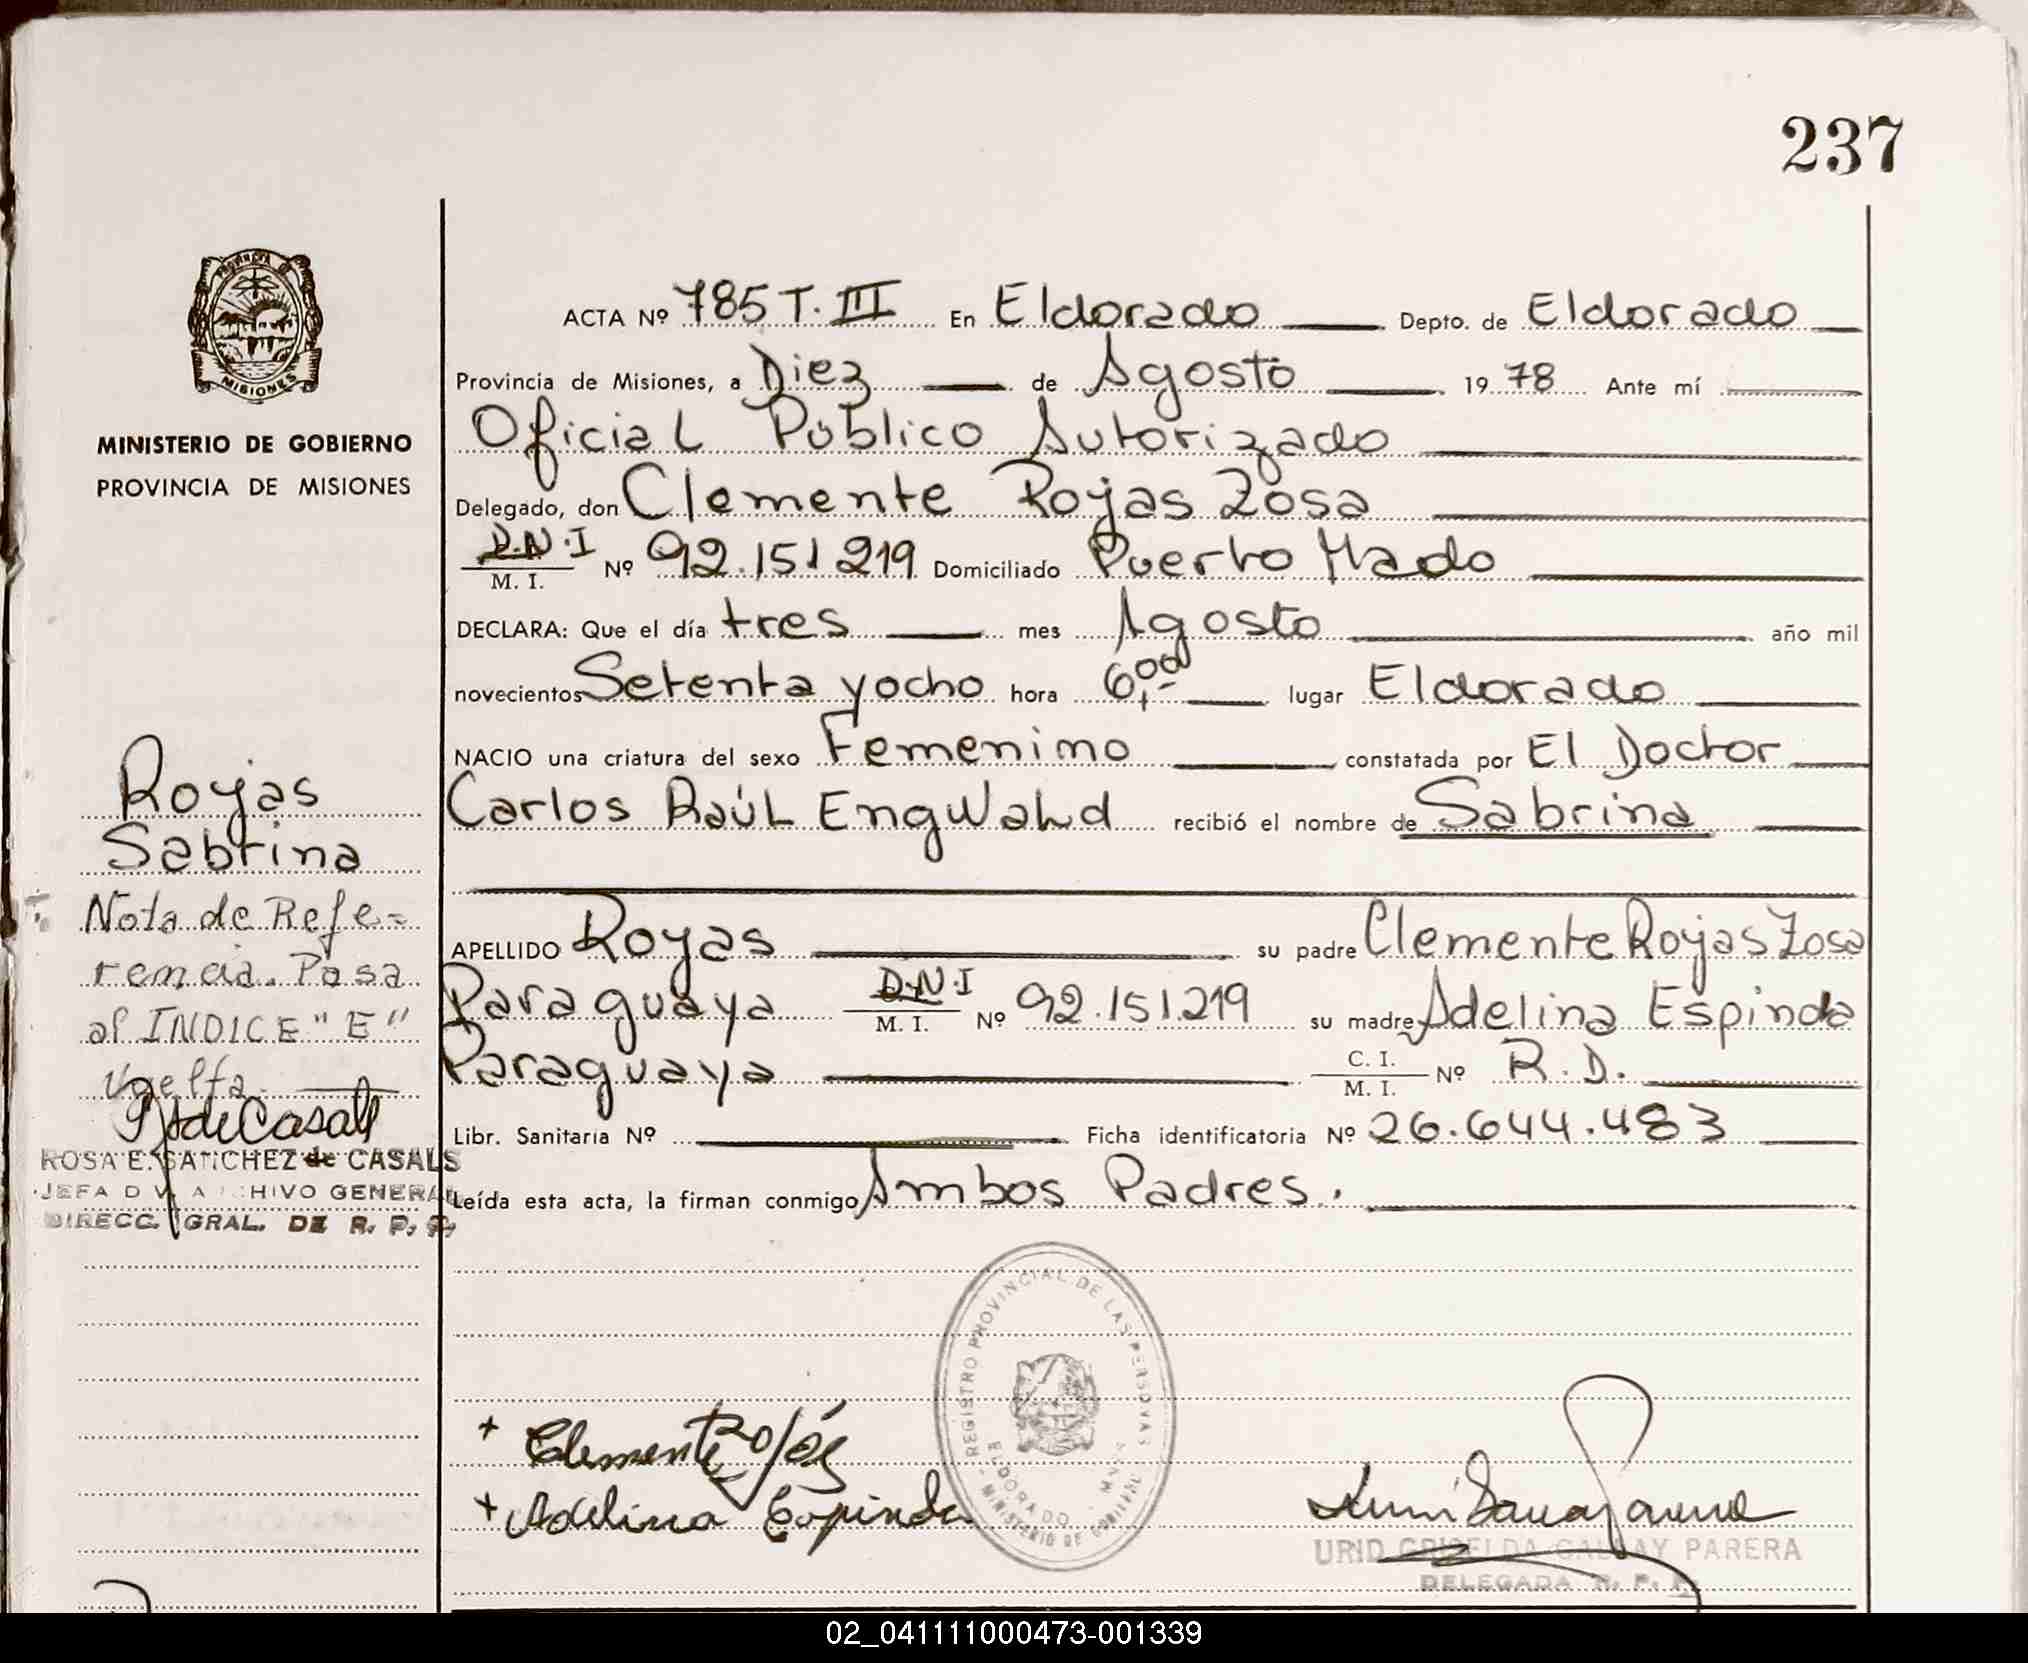 237
PROVINCIA DE
MISIONES
MINISTERIO DE GOBIERNO
PROVINCIA DE MISIONES
ACTA Nº 785 T. III En Eldorado Depto. de Eldorado
Provincia de Misiones, a Diez de Agosto 1978 Ante mí
Oficial Público Autorizado
Delegado, don Clemente Rojas Zosa
D.N.I
M. I. Nº 92.151.219 Domiciliado Puerto Mado
DECLARA: Que el día tres mes Agosto año mil
novecientos Setenta y ocho hora 6,00 lugar Eldorado
NACIO una criatura del sexo Femenino constatada por El Doctor
Carlos Raúl Engwald recibió el nombre de Sabrina
APELLIDO Rojas su padre Clemente Rojas Zosa
Paraguaya D.N.I M. I. Nº 92.151.219 su madre Adelina Espinda
Paraguaya C. I. M. I. Nº R.D.
Libr. Sanitaria Nº Ficha identificatoria Nº 26.644.483
Leída esta acta, la firman conmigo Ambos Padres.
Rojas
Sabrina
Nota de Refe=
rencia. Pasa
al INDICE "E"
Vuelta
ROSA E. SANCHEZ de CASALS
JEFA DIV. ARCHIVO GENERAL
DIRECC. GRAL. DE R. P. P.
REGISTRO PROVINCIAL DE LAS PERSONAS
ELDORADO - MNES
MINISTERIO DE GOBIERNO
+ Clemente Rojas
+ Adelina Espinda
GRISELDA PARERA
DELEGADA R. P. P.
02_041111000473-001339